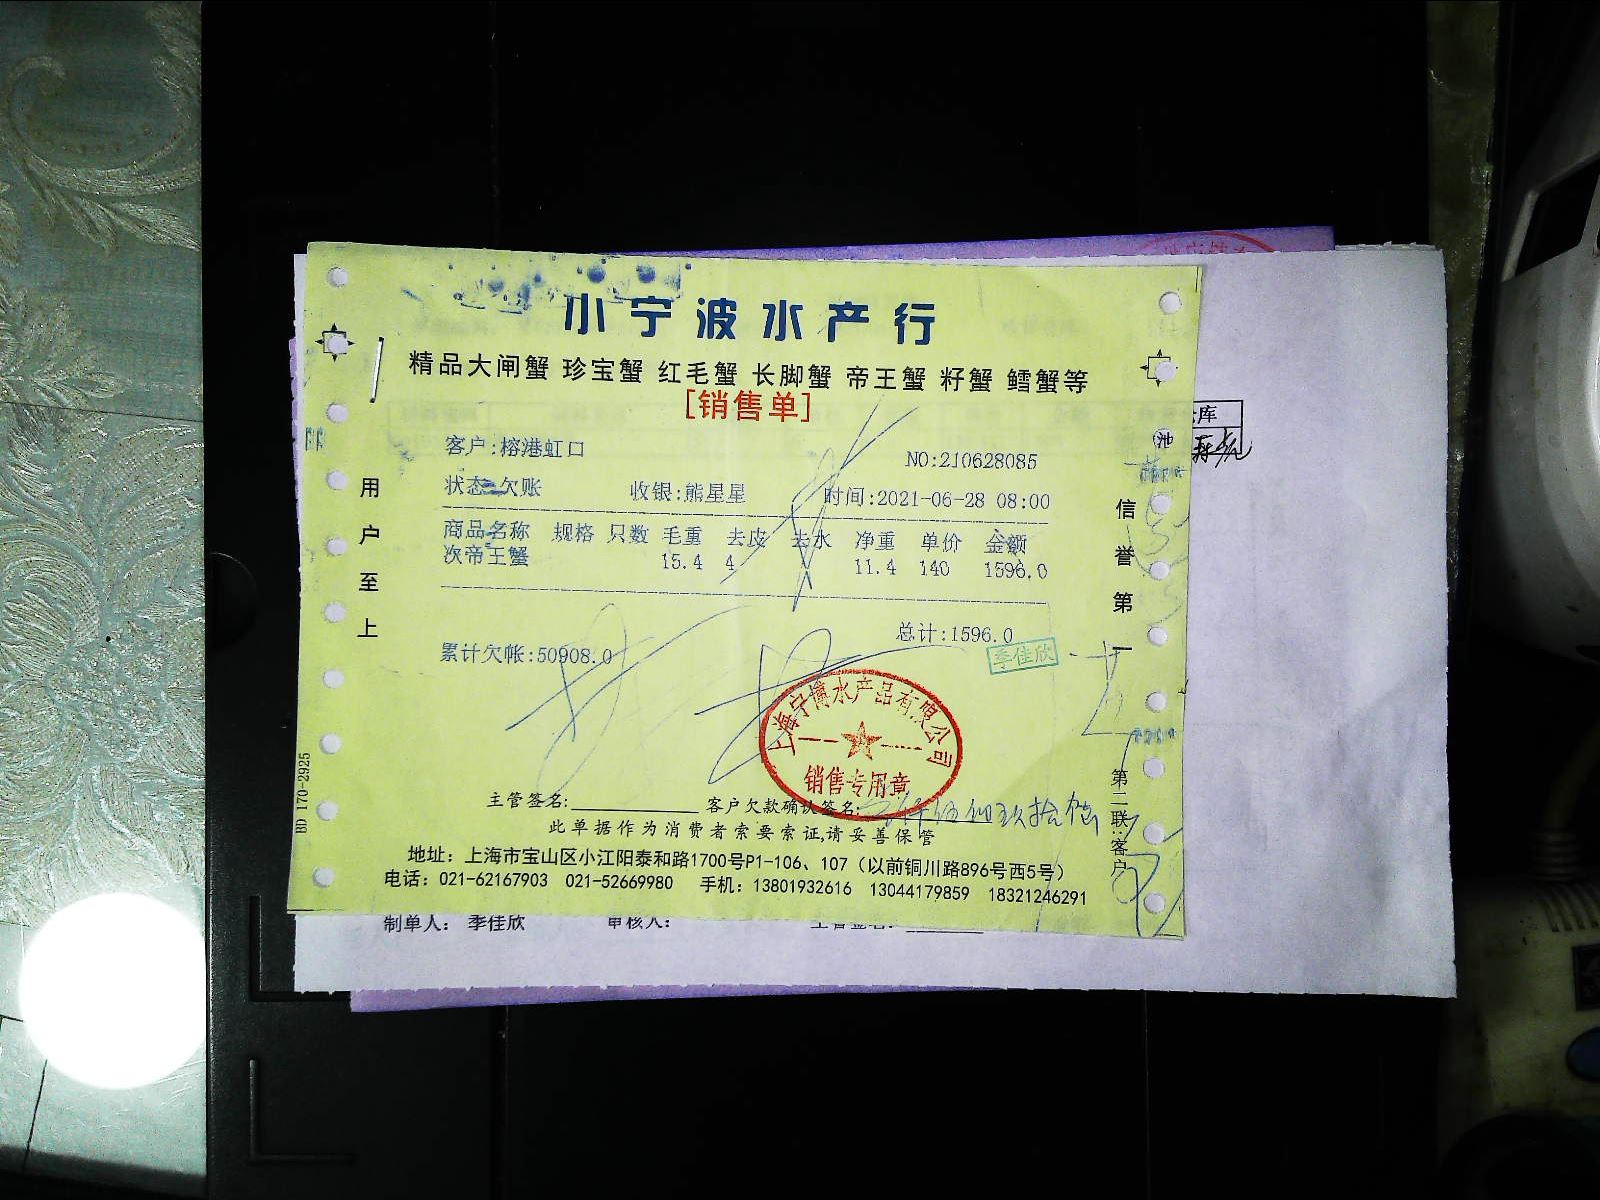 小宁波水产行
精品大闸蟹 珍宝蟹 红毛蟹 长脚蟹 帝王蟹 籽蟹 鳕蟹等
[销售单]
客户:榕港虹口
NO:210628085
状态:欠账 收银:熊星星 时间:2021-06-28 08:00
商品名称 规格 只数 毛重 去皮 去水 净重 单价 金额
次帝王蟹 15.4 4 11.4 140 1596.0
总计:1596.0
累计欠帐:50908.0
季佳欣
上海宁博水产品有限公司
销售专用章
主管签名: 客户欠款确认签名:
此单据作为消费者索要索证,请妥善保管
地址：上海市宝山区小江阳泰和路1700号P1-106、107（以前铜川路896号西5号）
电话：021-62167903 021-52669980 手机：13801932616 13044179859 18321246291
用户至上
信誉第一
第二联:客户
BD 170-2925
库
制单人： 季佳欣 审核人：